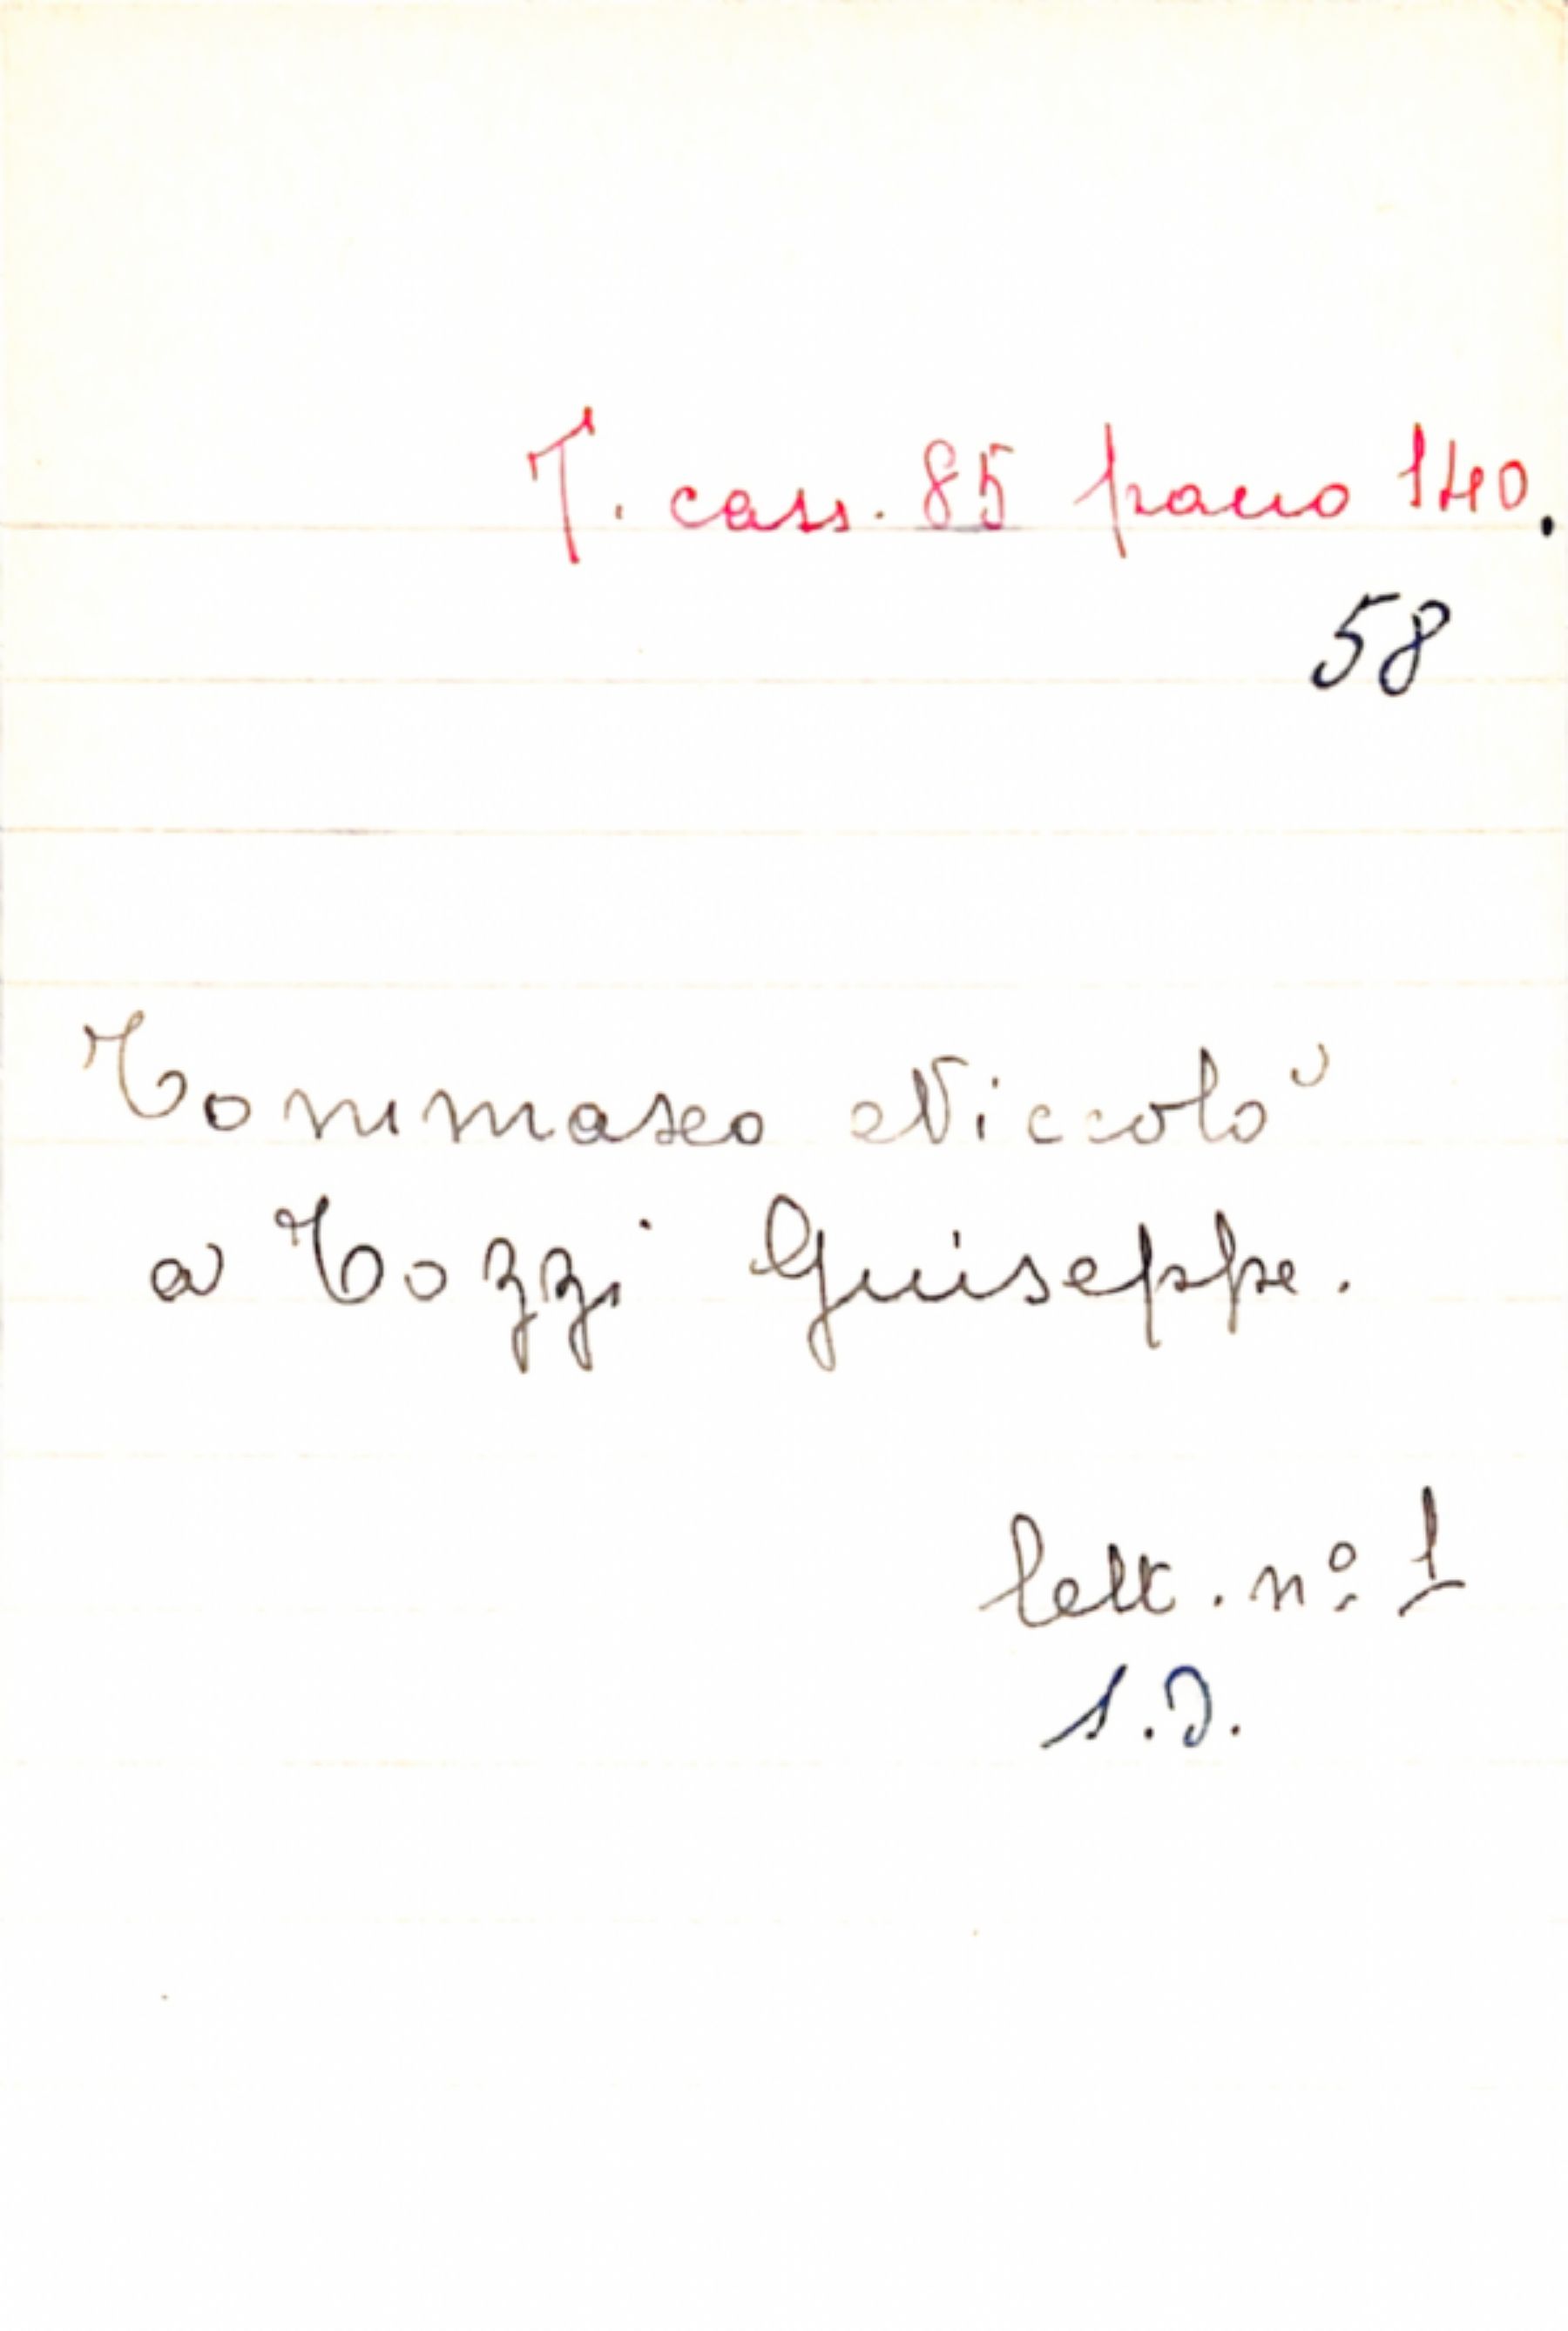 T. cass. 85 pacco 140.
58
Tommaseo Niccolò
a Tozzi Guiseppe.
lett. nº 1
s.d.